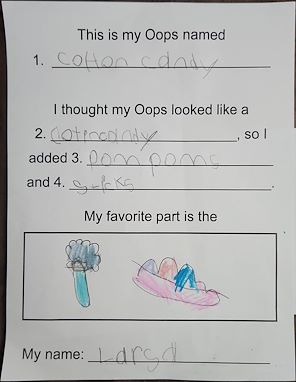 This is my Oops named
1. cotton candy
I thought my Oops looked like a
2. cotencandy, so I
added 3. Pom poms
and 4.
My favorite part is the
My name: